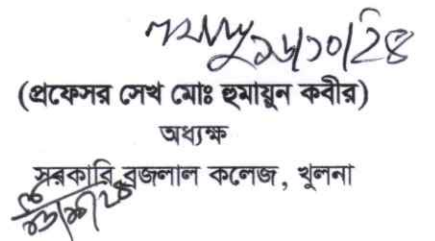 ১৬/১০/২৪
(প্রফেসর সেখ মোঃ হুমায়ুন কবীর)
অধ্যক্ষ
সরকারি ব্রজলাল কলেজ, খুলনা